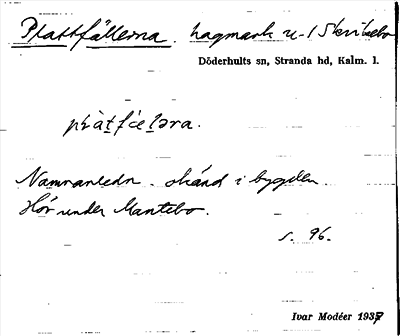 Plattfällerna. hagmark u-1 Skrikebo
Döderhults sn, Stranda hd, Kalm. l.
plàtfɛ̀lәra.
Namnanledn. okänd i bygden
Hör under Mantebo.
s. 96.
Ivar Modéer 1937